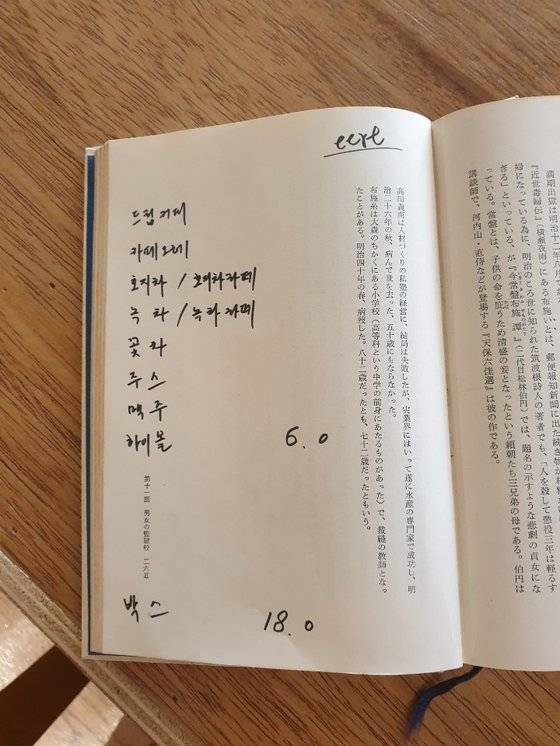 eert
드립커피
카페오레
호지차 / 호지차라떼
녹차 / 녹차라떼
꽃차
주스
맥주
하이볼 6.0
박스 18.0
満期出獄は明治十二年八月で
『近世毒婦伝』(横瀬夜雨)にある布施いとは、郵便報知新聞に出た続き物が
婦になっている為に、明治のころ世に知られた筑波根詩人の著者でも、「人を殺して懲役三年は軽るす
ぎる」といっている、が『今常盤布施譚』(二代目松林伯円)では、題名の示すような悲劇の貞女にな
っている。常盤とは、子供の命を庇うため清盛の妾となったという頼朝たち三兄弟の母である。伯円は
講談師で、河内山・直侍などが登場する『天保六佳選』は彼の作である。
高田義甫は人材づくりの私塾の経営に、結局は失敗したが、実業界にはいって遂に水産の専門家で成功し、明
治二十六年の秋、病んで世を去った。五十歳にもならなかった。
布施糸は大森のちかくにある小学校(高等科という中学の前身にあたるものがあった)で、裁縫の教師となっ
たことがある。明治四十年の春、病歿した。八十二歳だったとも、七十二歳だったともいう。
第十一回 男女の監獄校 二六五